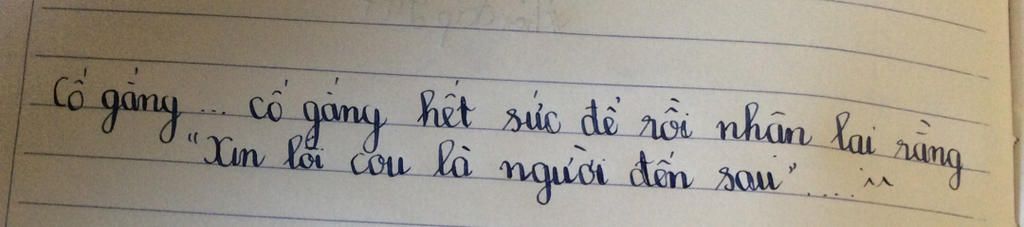 Cố gắng ... cố gắng hết sức để rồi nhân lại rằng
"Xin lỗi cou là người đến sau" .... ^^